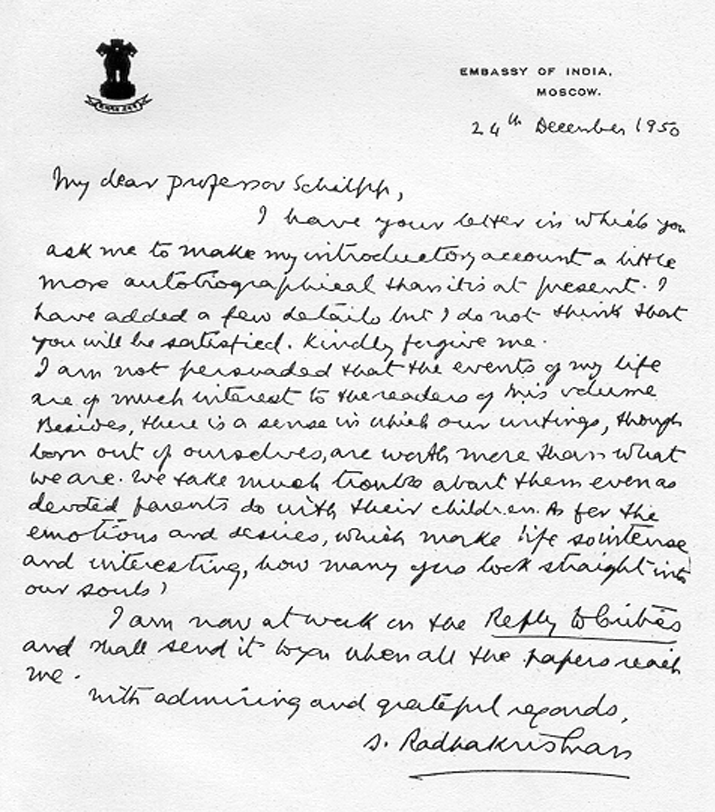 EMBASSY OF INDIA,
MOSCOW.
24th December 1950
My dear Professor Schilpp,
I have your letter in which you
ask me to make my introductory account a little
more autobiographical than it is at present. I
have added a few details but I do not think that
you will be satisfied. Kindly forgive me.
I am not persuaded that the events of my life
are of much interest to the readers of this volume
Besides, there is a sense in which our writings, though
born out of ourselves, are worth more than what
we are. We take much trouble about them even as
devoted parents do with their children. As for the
emotions and desires, which make life so intense
and interesting, how many of us look straight into
our souls?
I am now at work on the Reply to Critics
and shall send it to you when all the papers reach
me.
With admiring and grateful regards,
S. Radhakrishnan